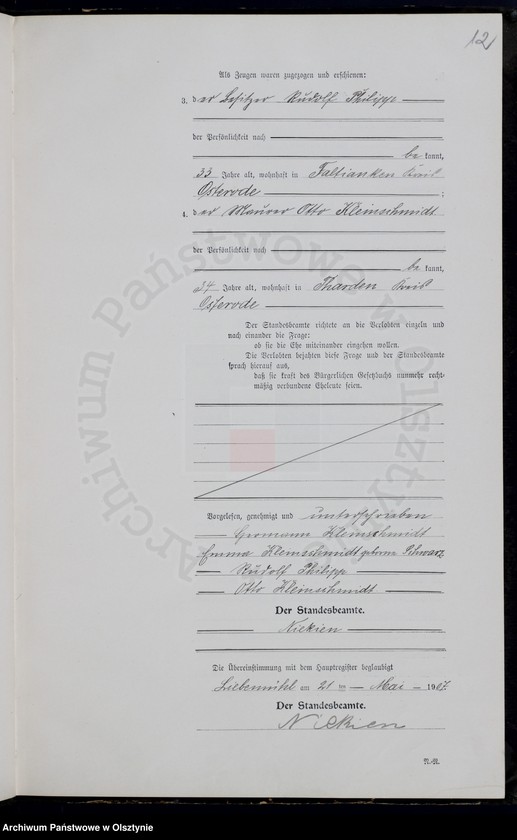 12
Als Zeugen waren zugezogen und erschienen:
3. der Besitzer Rudolf Philipp
der Persönlichkeit nach
be kannt,
33 Jahre alt, wohnhaft in Taltianken Kreis
Osterode ;
4. der Maurer Otto Kleinschmidt
der Persönlichkeit nach
be kannt,
24 Jahre alt, wohnhaft in Tharden Kreis
Osterode
Der Standesbeamte richtete an die Verlobten einzeln und
nach einander die Frage:
ob sie die Ehe miteinander eingehen wollen.
Die Verlobten bejahten diese Frage und der Standesbeamte
sprach hierauf aus,
daß sie kraft des Bürgerlichen Gesetzbuchs nunmehr recht-
mäßig verbundene Eheleute seien.
Vorgelesen, genehmigt und unterschrieben
Hermann Kleinschmidt
Emma Kleinschmidt geborene Schwarz
Rudolf Philipp
Otto Kleinschmidt
Der Standesbeamte.
Niekien
Die Übereinstimmung mit dem Hauptregister beglaubigt
Liebemühl am 21 ten Mai 1907.
Der Standesbeamte.
Niekien
R.-R.
Archiwum Państwowe w Olsztynie
Archiwum Państwowe w Olsztynie